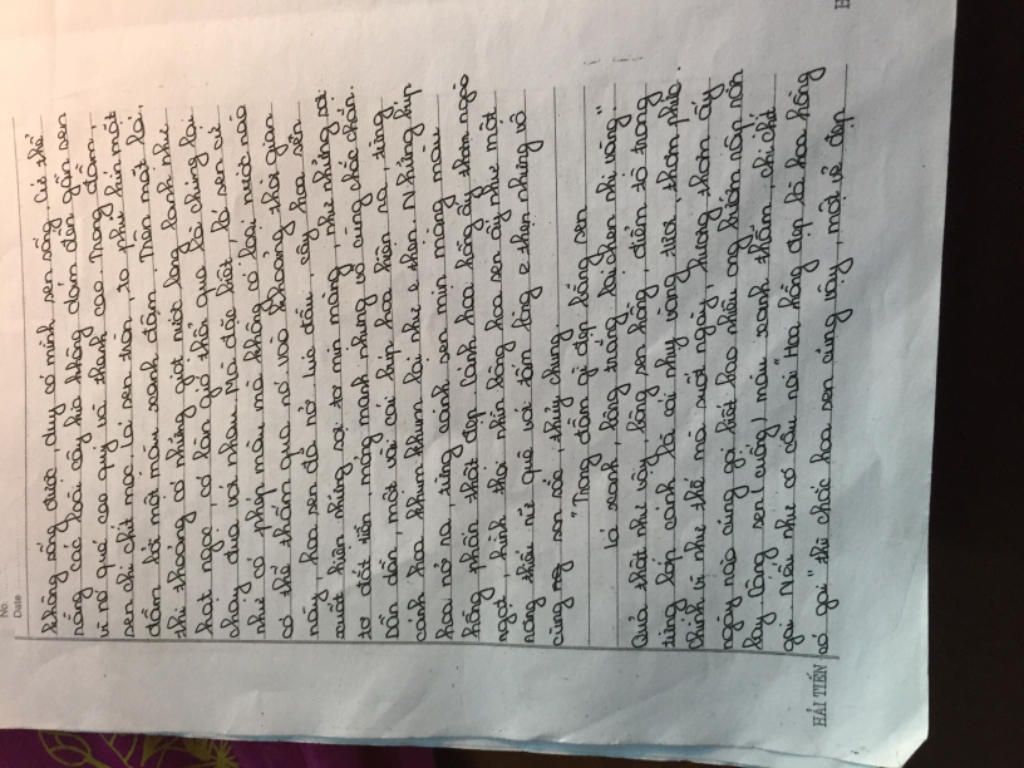 No.
Date
không sống dưới, duy có mình sen sống. Có thể
nắng các loài cây kia không dám đến gần sen
vì nó quá cao quý và thanh cao. Trong đầm,
sen chi chít mọc, lá sen tròn, to phủ kín mặt
đầm bởi một màu xanh đậm. Trên mặt lá,
thi thoảng có những giọt nước long lanh như
hạt ngọc, có làn gió thổi qua là chúng lại
chạy đua với nhau. Mà đặc biệt, lá sen cứ
như có phép màu mà không có loại nước nào
có thể thấm qua nó. Vào khoảng thời gian
này, hoa sen đã nở lúc đầu, cây hoa sen
xuất hiện những sợi tơ mịn màng, như những sợi
tơ dệt tiên, mỏng manh nhưng vô cùng chắc chắn.
Dần dần, một vài cái búp hoa hiện ra, từng
cánh hoa khum khum lại như e thẹn. Những búp
hoa nở ra, từng cánh sen mịn màng màu
hồng phấn thật đẹp. Cánh hoa hồng ấy thơm ngào
ngạt, hình thôi nhìn bông hoa sen ấy như một
nàng thiếu nữ quê với tấm lòng e thẹn nhưng vô
cùng son sắc, thủy chung.
"Trong đầm gì đẹp bằng sen
Lá xanh, bông trắng lại chen nhị vàng"
Quả thật như vậy, bông sen hồng, điểm tô trong
từng lớp cánh là cái nhụy vàng tươi, thơm phức.
Chính vì như thế mà suốt ngày, hương thơm ấy
ngày nào cũng gọi biết bao nhiêu ong bướm nập nờn
hay. Cộng sen (cuống) màu xanh thẫm, chi chít
gai. Nếu như có câu nói "Hoa hồng đẹp là hoa hồng
có gai" thì chắc hoa sen cũng vậy, một vẻ đẹp
HẢI TIẾN